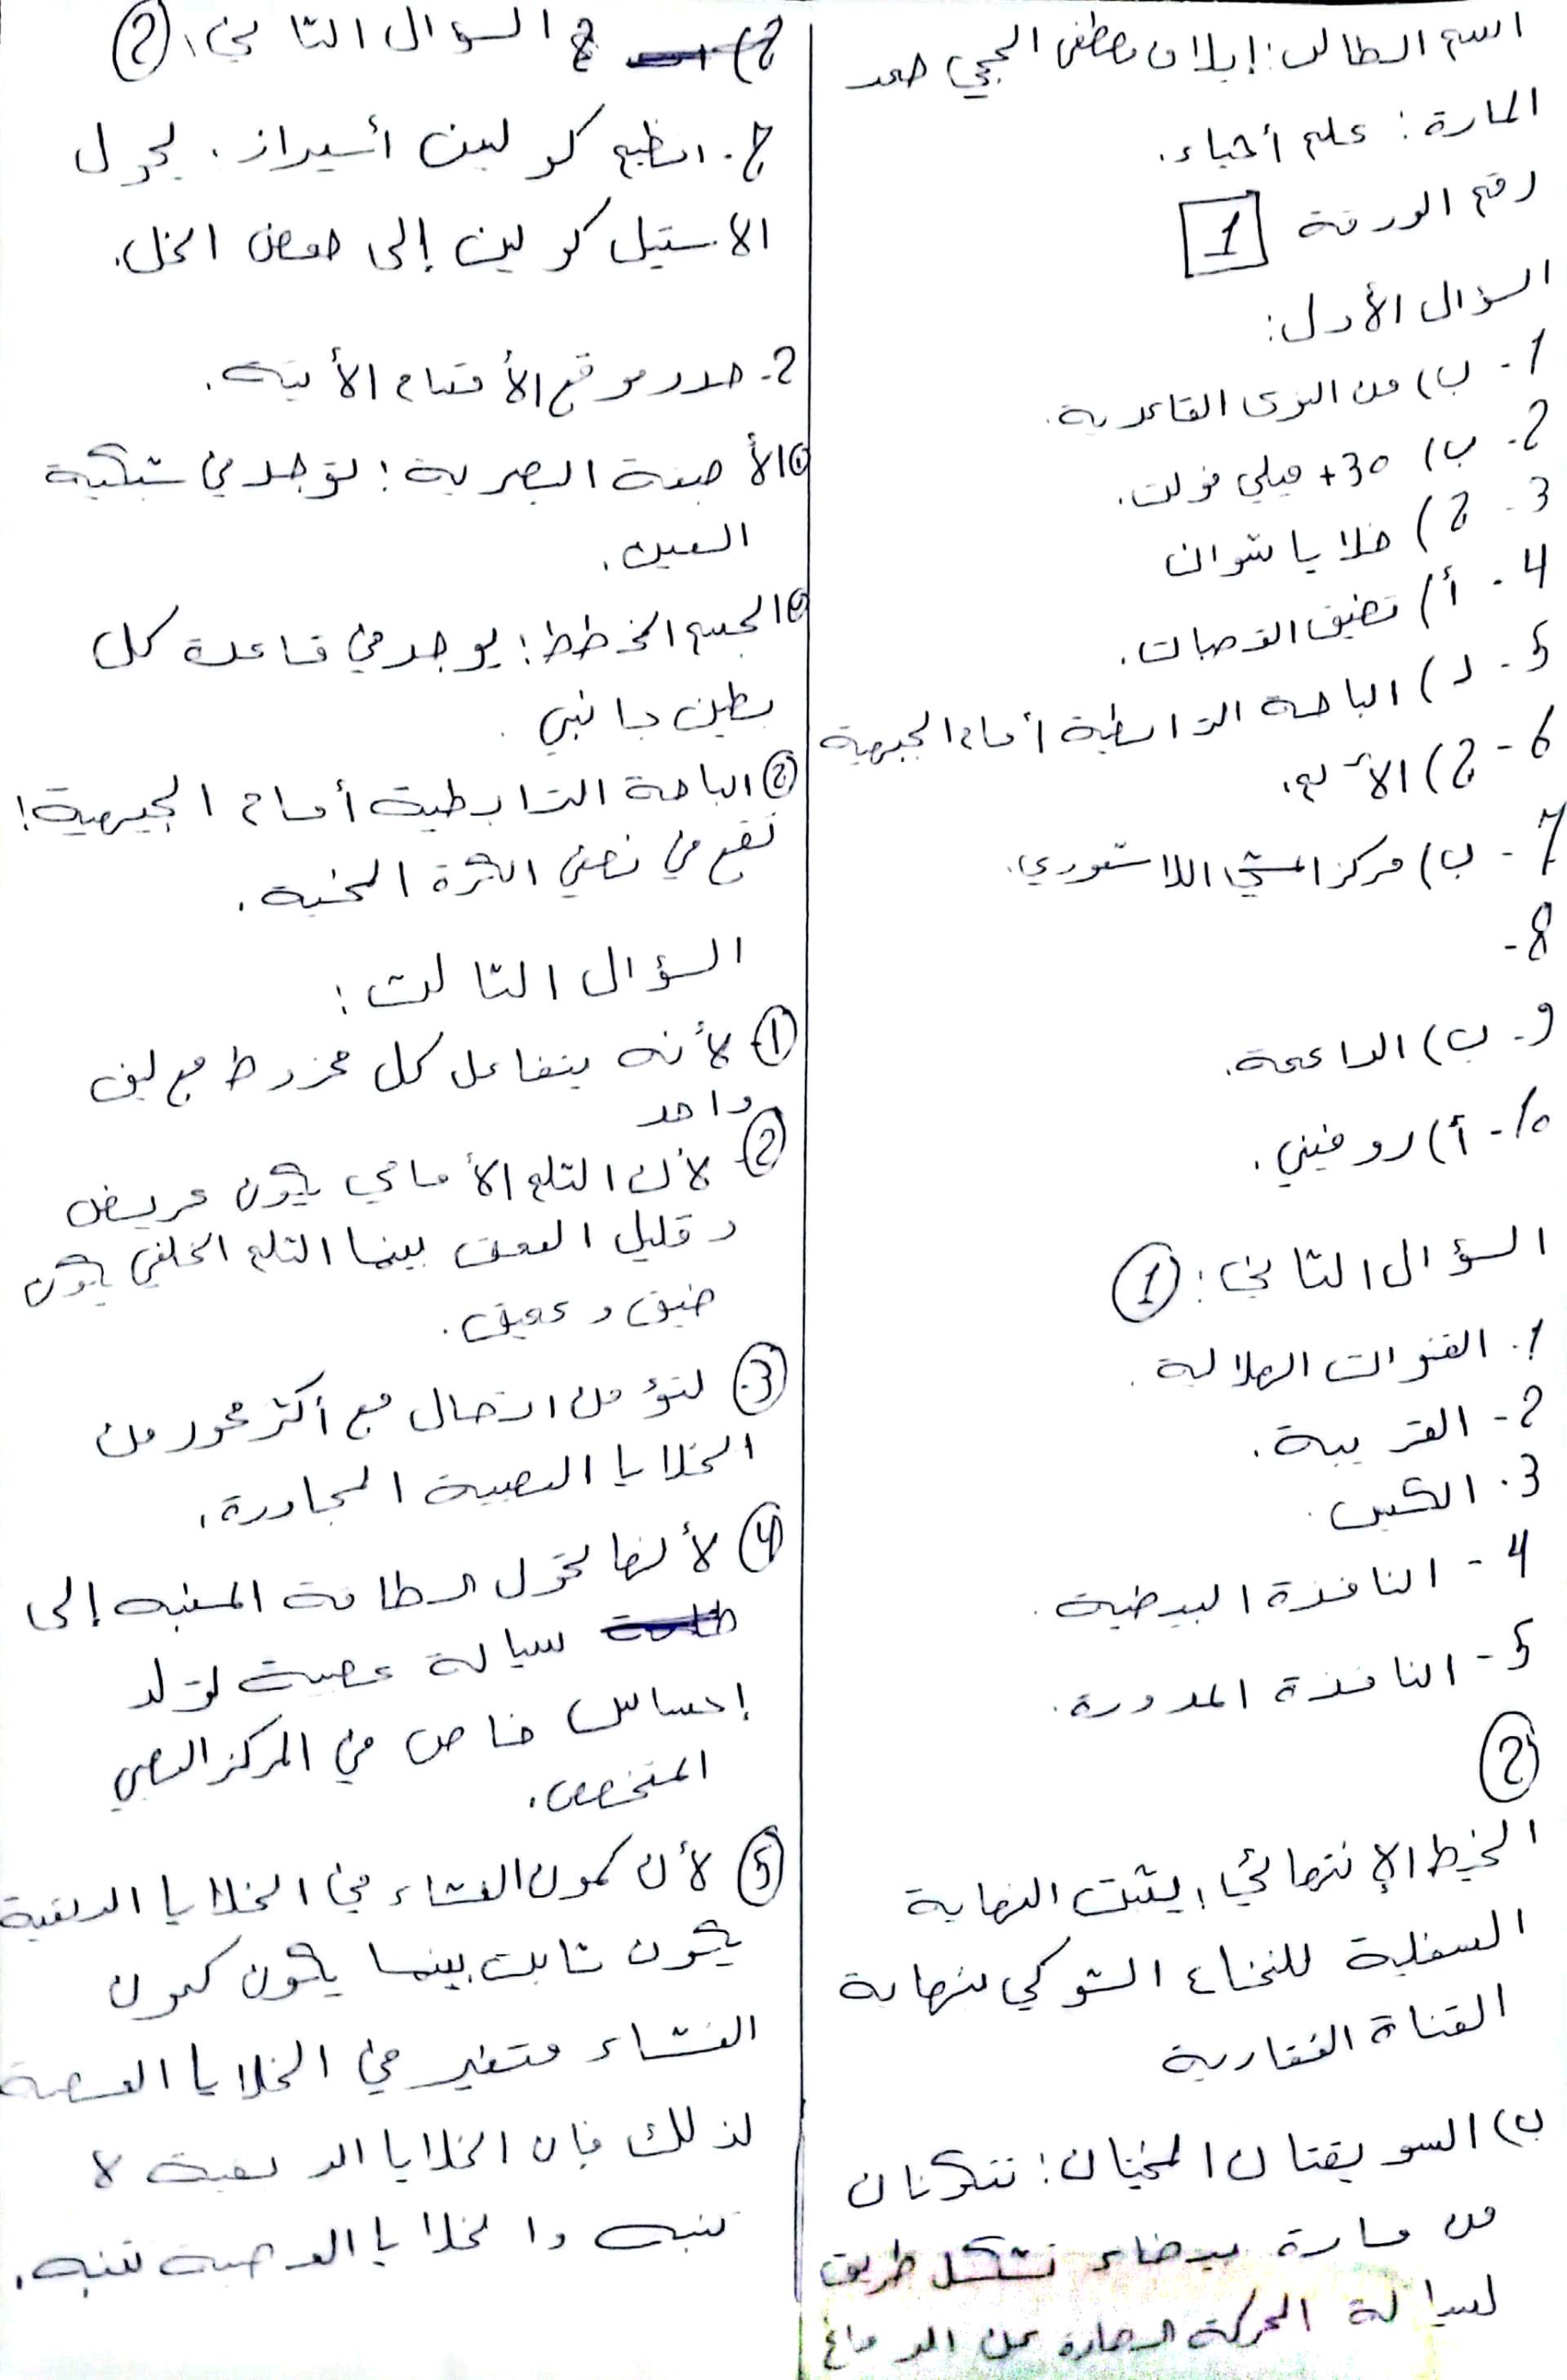 اسم الطالب: إيلاف مصطفى الحجي حمد
المادة: علم أحياء.
رقم الورقة 1
السؤال الأول:
1- ب) من النوى القاعدية.
2- ب) +30 ميلي فولت.
3- ج) خلايا شوان
4- أ) تضيق القصبات.
5- د) الباحة الترابطية أمام الجبهية
6- ج) الألم.
7- ب) مركز المشي اللاشعوري.
8-
9- ب) الداعمة.
10- أ) روفيني.
السؤال الثاني: ①
1. القنوات الهلالية.
2- القريبة.
3. الكييس.
4- النافذة البيضية.
5- النافذة المدورة.
②
الخيط الإنتهائي: يثبت النهاية
السفلية للنخاع الشوكي بنهاية
القناة الفقارية
ب) السويقتان المخيتان: تتكونان
من مادة بيضاء تشكل طريق
لسيالة الحركة الصادرة عن الدماغ
ج السؤال الثاني: ②
ج. انظيم كولين أستيراز. يحول
الاستيل كولين إلى حمض الخل.
2- حدد موقع الأقسام الأتية.
① الأصبغة البصرية: توجد في شبكية
العين.
② الجسم المخطط: يوجد في قاعدة كل
بطين جانبي.
③ الباحة الترابطية أمام الجبهية:
تقع في نصفي الكرة المخية.
السؤال الثالث:
① لأنه يتفاعل كل مخروط مع ليف
واحد
② لأن الثلم الأمامي يكون عريض
وقليل العمق بينما الثلم الخلفي يكون
ضيق وعميق.
③ لتؤمن اتصال مع أكثر محور من
الخلايا العصبية المجاورة.
④ لأنها تحول الطاقة المنبه إلى
سيالة عصبية تولد
إحساس خاص في المركز العصبي
المتخصص.
⑤ لأن كمون الغشاء في الخلايا الدبقية
يكون ثابت بينما يكون كمون
الغشاء متغير في الخلايا العصبية
لذلك فإن الخلايا الدبقية لا
تنبه والخلايا العصبية تنبه.